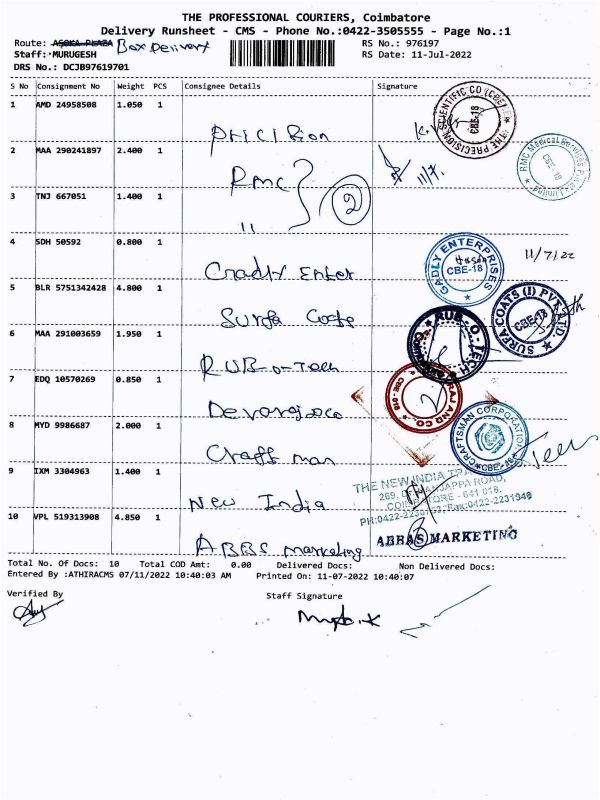 THE PROFESSIONAL COURIERS, Coimbatore
Delivery Runsheet - CMS - Phone No.:0422-3505555 - Page No.:1
Route: ASOKA PLAZA Box Delivery
RS No.: 976197
Staff: MURUGESH
RS Date: 11-Jul-2022
DRS No.: DCJB97619701
S No Consignment No Weight PCS Consignee Details Signature
1 AMD 24958508 1.050 1
Precision
2 MAA 290241897 2.400 1
RMC 2 11/7.
3 TNJ 667051 1.400 1
"
4 SDH 50592 0.800 1
11/7/22
5 BLR 5751342428 4.800 1
Surfa Coate
6 MAA 291003659 1.950 1
RUB-O-Tech
7 EDQ 10570269 0.850 1
Devaraj&co
8 MYD 9986687 2.000 1
Craff man
9 IXM 3304963 1.400 1
New India
10 VPL 519313908 4.850 1
ABBS marketing
SCIENTIFIC CO (CBE) * THE PRECISION
CBE-18
RMC Medical Services
CBE-18
GADLY ENTERPRISES
CBE-18
SURFA COATS (I) PVT. LTD.
CBE-18
RUB-O-TECH
RAJ AND CO.
CBE-018
CRAFTSMAN CORPORATION
CBE-18
THE NEW INDIA
COIMBATORE - 641 018.
ABBAS MARKETING
Total No. Of Docs: 10 Total COD Amt: 0.00 Delivered Docs: Non Delivered Docs:
Entered By :ATHIRACMS 07/11/2022 10:40:03 AM Printed On: 11-07-2022 10:40:07
Verified By
Staff Signature